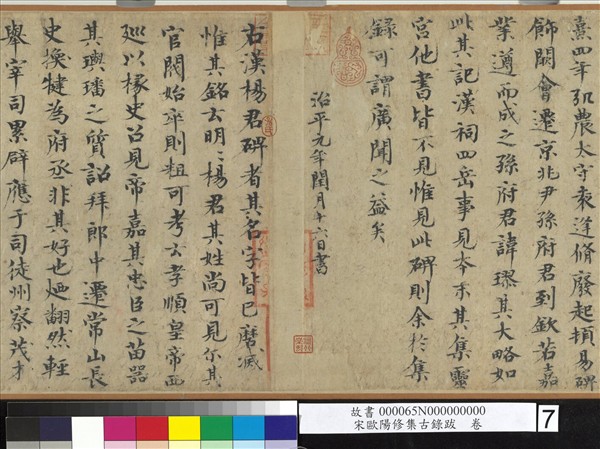 熹四年弘農太守袁逢脩廢起頓易碑
飾闕會遷京兆尹孫府君到欽若嘉
業遵而成之孫府君諱璆其大略如
此其記漢祠四岳事見本末其集靈
宮他書皆不見惟見此碑則余於集
錄可謂廣聞之益矣
治平元年閏月十六日書
右漢楊君碑者其名字皆已磨滅
惟其銘云明明楊君其姓尚可見尔其
官閥始卒則粗可考云孝順皇帝西
巡以掾史召見帝嘉其忠臣之苗器
其璵璠之質詔拜郎中遷常山長
史換犍為府丞非其好也迺翻然輕
舉宰司累辟應于司徒州察茂才
故書 000065N000000000
宋歐陽修集古錄跋 卷
7